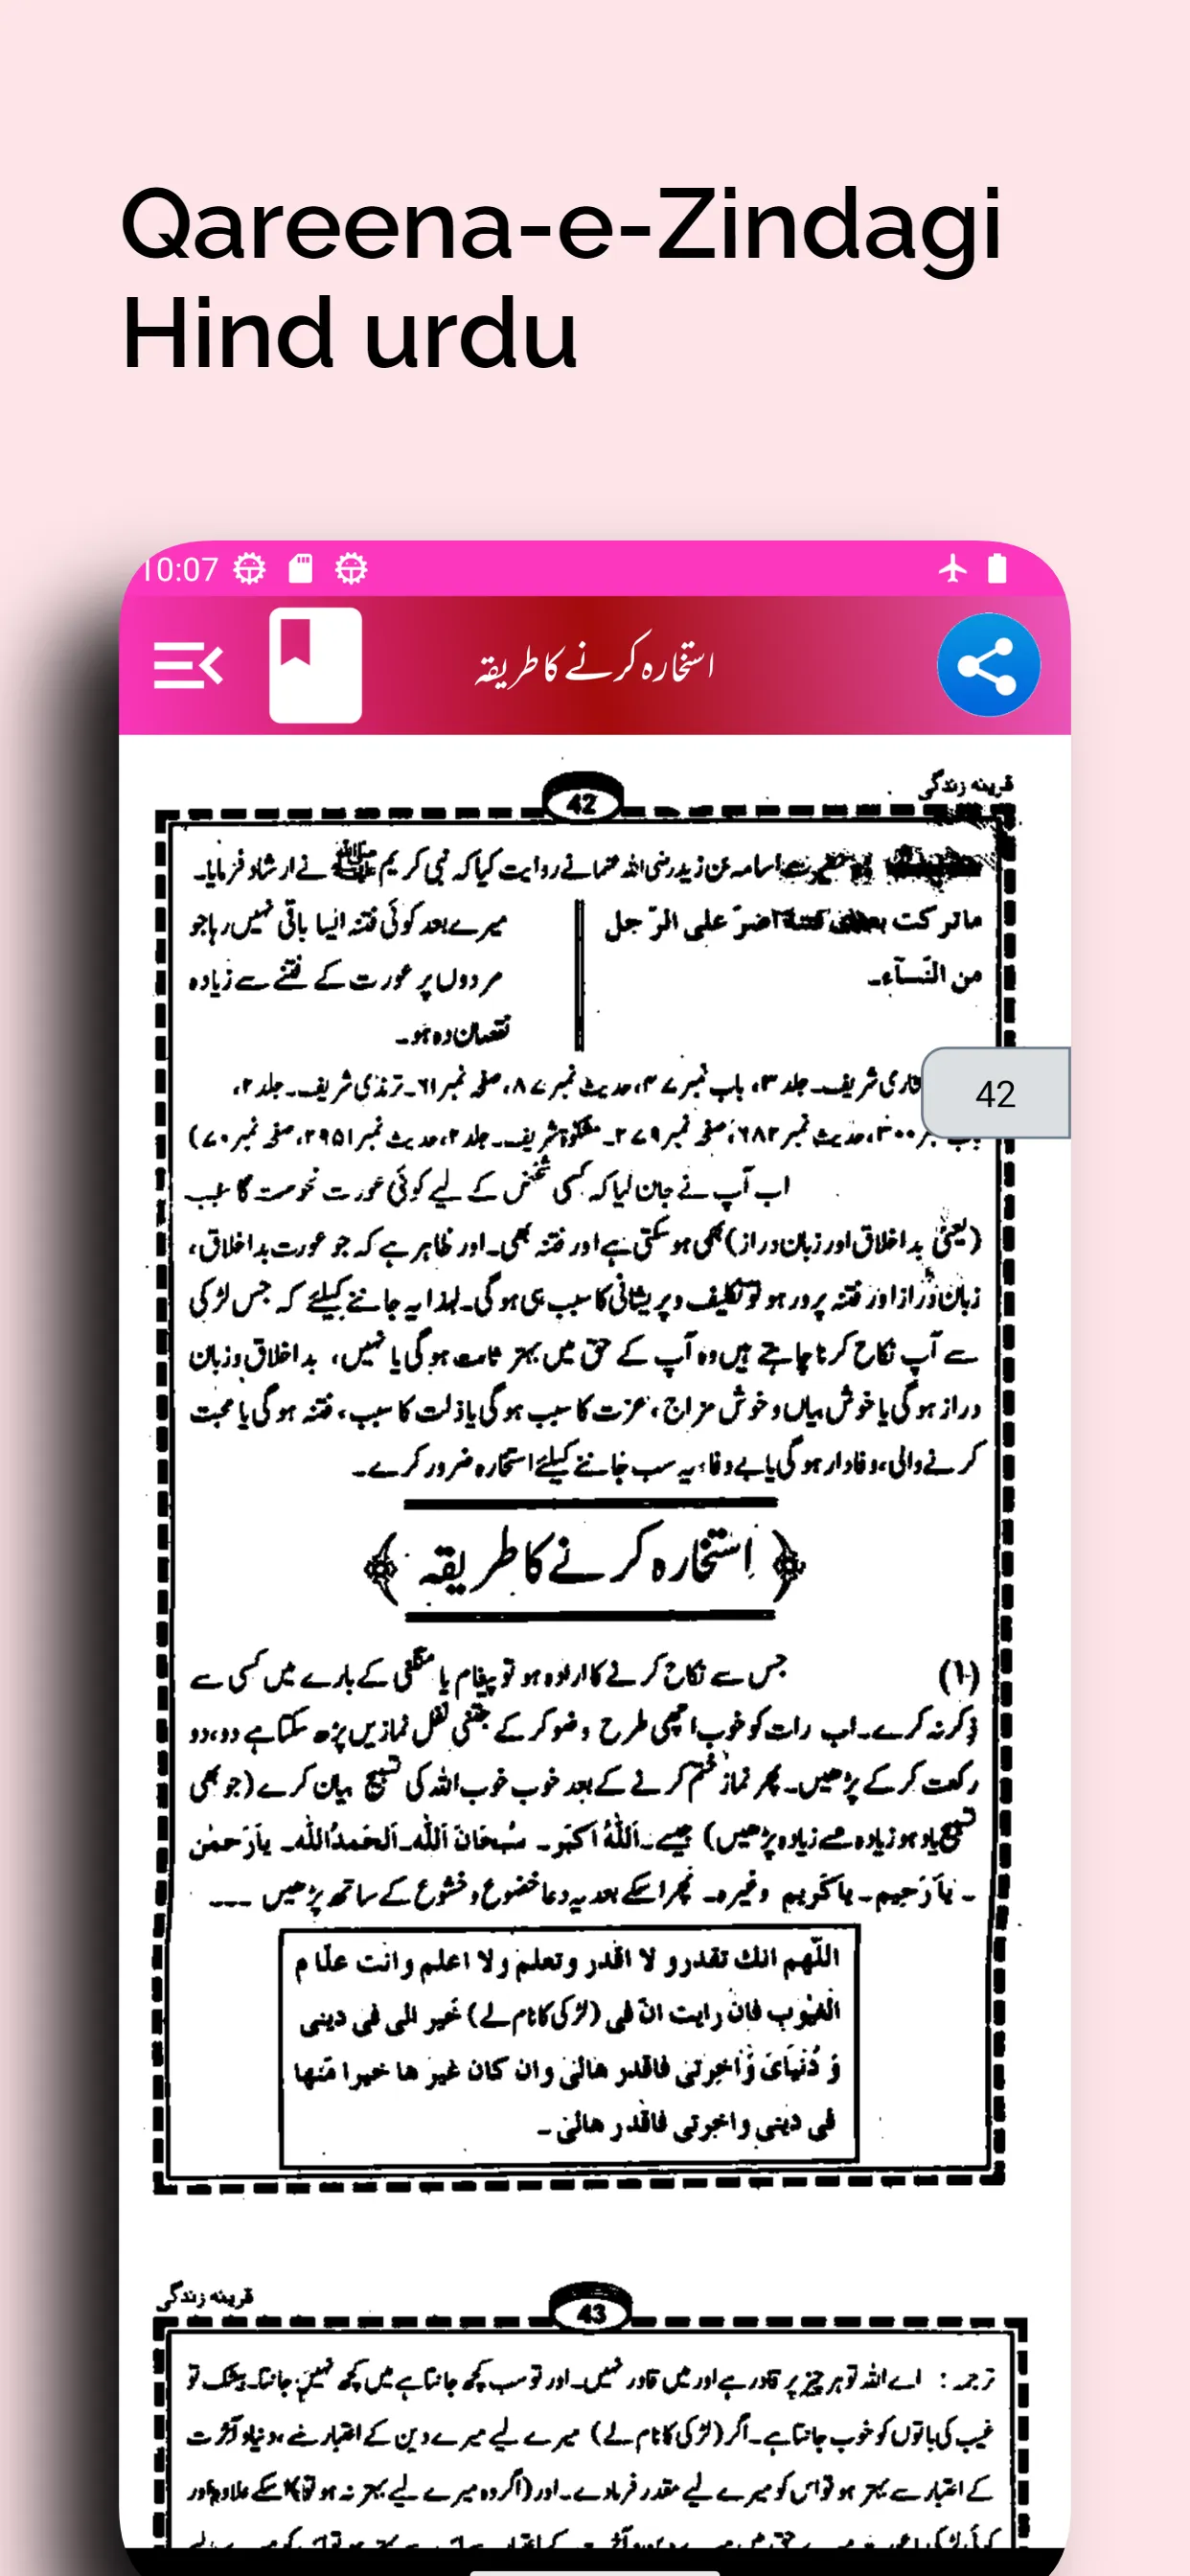 Qareena-e-Zindagi
Hind urdu
10:07
استخارہ کرنے کا طریقہ
قرینہ زندگی
42
اسامہ بن زید رضی اللہ عنہما نے روایت کیا کہ نبی کریم ﷺ نے ارشاد فرمایا۔
ماترکت بعدی فتنة اضرّ علی الرّجل
من النّسآء۔
میرے بعد کوئی فتنہ ایسا باقی نہیں رہا جو
مردوں پر عورت کے فتنے سے زیادہ
نقصان دہ ہو۔
شریف۔ جلد ۳، باب نمبر ۴۷، حدیث نمبر ۸۷، صفحہ نمبر ۶۱۔ ترمذی شریف۔ جلد ۲،
۳۰۰، حدیث نمبر ۶۸۲، صفحہ نمبر ۲۷۹۔ مشکوٰۃ شریف۔ جلد ۲، حدیث نمبر ۲۹۵۱، صفحہ نمبر ۷۰)
42
اب آپ نے جان لیا کہ کسی شخص کے لیے کوئی عورت نحوست کا سبب
(یعنی بد اخلاق اور زبان دراز) بھی ہو سکتی ہے اور فتنہ بھی۔ اور ظاہر ہے کہ جو عورت بد اخلاق،
زبان دراز اور فتنہ پرور ہو تو تکلیف و پریشانی کا سبب ہی ہو گی۔ لہذا یہ جاننے کیلئے کہ جس لڑکی
سے آپ نکاح کرنا چاہتے ہیں وہ آپ کے حق میں بہتر ثابت ہو گی یا نہیں، بد اخلاق و زبان
دراز ہو گی یا خوش بیاں و خوش مزاج، عزت کا سبب ہو گی یا ذلت کا سبب، فتنہ ہو گی یا محبت
کرنے والی، وفادار ہو گی یا بے وفا، یہ سب جاننے کیلئے استخارہ ضرور کرے۔
﴿اِستخارہ کرنے کا طریقہ﴾
(۱) جس سے نکاح کرنے کا ارادہ ہو تو پیغام یا منگنی کے بارے میں کسی سے
ذکر نہ کرے۔ اب رات کو خوب اچھی طرح وضو کر کے جتنی نفل نمازیں پڑھ سکتا ہے دو، دو
رکعت کر کے پڑھیں۔ پھر نماز ختم کرنے کے بعد خوب خوب اللہ کی تسبیح بیان کرے (جو بھی
تسبیح یاد ہو زیادہ سے زیادہ پڑھیں) جیسے۔ اَللّٰهُ اَکبَر۔ سُبْحَانَ اَللّٰه۔ اَلحَمدُ اللّٰه۔ یَاَرَحمٰن
۔ یَاَرَحِیم۔ یاکَرِیم وغیرہ۔ پھر اسکے بعد یہ دعا خضوع و خشوع کے ساتھ پڑھیں ---
اللّٰهم انك تقدرو لا اقدر وتعلم ولا اعلم وانت علّا م
الغیوب فان رایت انّ فی (لڑکی کا نام لے) خَیر الی فی دینی
وَ دُنْیَایَ وَاٰخِرتی فاقدر هالیٰ وان کان غیرَ ها خیرا مّنها
فی دینی واخِرتی فاقدر هالیٰ ۔
قرینہ زندگی
43
ترجمہ: اے اللہ تو ہر چیز پر قادر ہے اور میں قادر نہیں۔ اور تو سب کچھ جانتا ہے میں کچھ نہیں جانتا۔ بیشک تو
غیب کی باتوں کو خوب جانتا ہے۔ اگر (لڑکی کا نام لے) میرے لیے میرے دین کے اعتبار سے، دنیا و آخرت
کے اعتبار سے بہتر ہو تو اس کو میرے لیے مقدر فرمادے۔ اور (اگر وہ میرے لیے بہتر نہ ہو تو) اسکے علاوہ اور